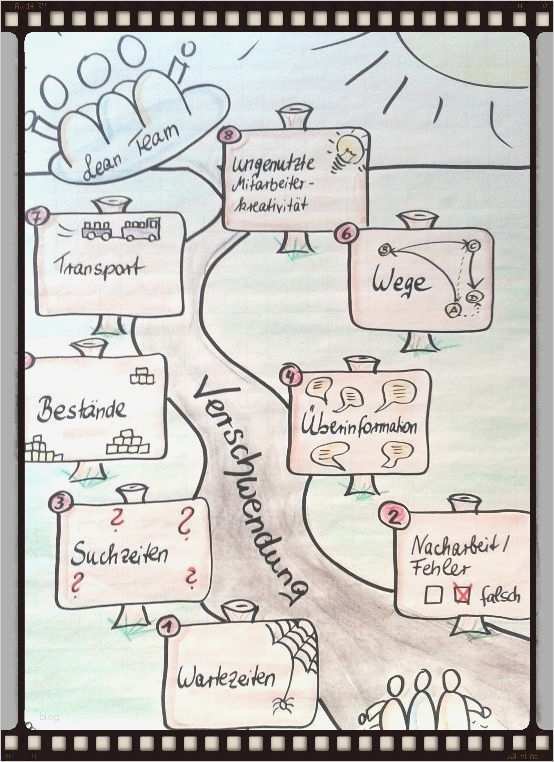 Lean Team
8
Ungenutzte
Mitarbeiter-
kreativität
7
Transport
6
Wege
B
C
D
A
Bestände
4
Überinformation
Verschwendung
3
Suchzeiten
? ? ? ?
2
Nacharbeit/
Fehler
falsch
1
Wartezeiten
blog